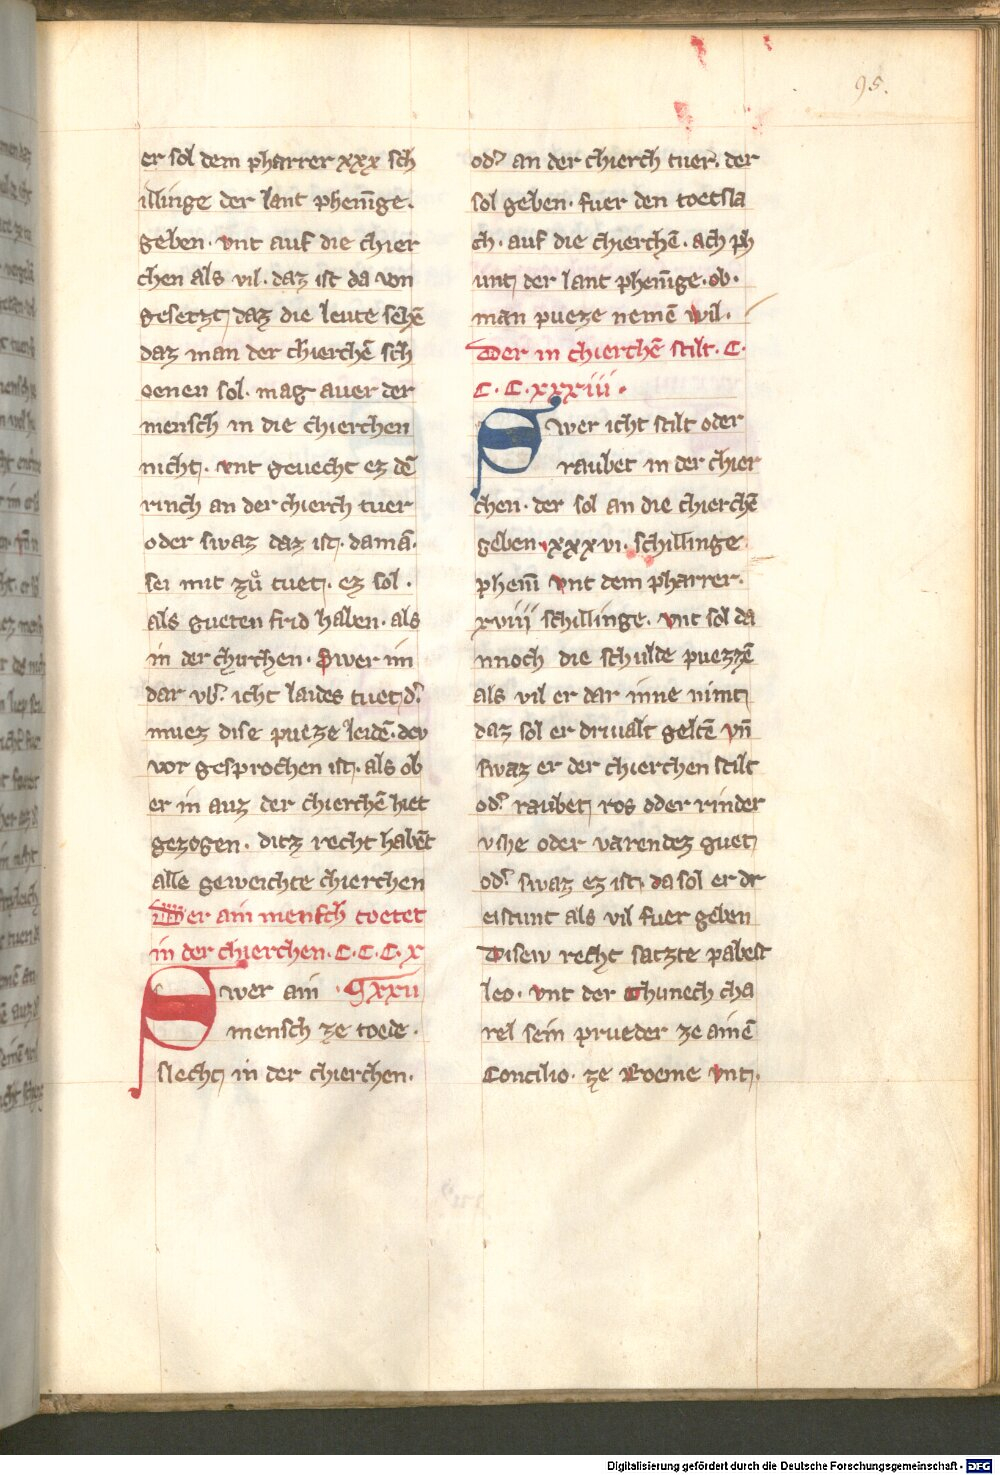 95.
er sol dem pharrer xxx sch
illinge der lant phenīge.
geben. vnt auf die chier
chen als vil. daz ist da von
gesetzt daz die leute sehē
daz man der chierchē sch
oenen sol. mag auer der
mensch in die chierchen
nicht. vnt gevecht ez dē
rinch an der chierch tuer
oder swaz daz ist. da mā.
sei mit zuͦ tuet. ez sol.
als gueten frid haben. als
in der chirchen. Swer im
dar vb̾ icht laides tuet d̾
muez dise pueze leidē. dev
vor gesprochen ist. als ob
er in auz der chierchē hiet
gezogen. ditz recht habēt
alle geweichte chierchen
Der ain mensch toetet
in der chierchen. C. C. C. x
Swer ain xxii
mensch ze toede.
slecht in der chierchen.
od̾ an der chierch tuer. der
sol geben. fuer den toetsla
ch. auf die chierchē. ach ph
unt der lant phenīge. ob.
man pueze nemē wil.
Der in chierchē stilt. C.
C. C. xxxiii.
Swer icht stilt oder
raubet in der chier
chen. der sol an die chierchē
geben. xxxvi. schillinge
phenī vnt dem pharrer.
xviii schillinge. vnt sol da
nnoch die schulde puezzē
als vil er dar inne nimt
daz sol er drivalt geltē vn̄
swaz er der chierchen stilt
od̾ raubet ros oder rinder
vihe oder varendez guet
od̾ swaz ez ist. da sol er dr
eistunt als vil fuer geben
Disew recht satzte pabest
leo. vnt der chunech cha
rel sein prueder ze ainē
Concilio. ze Roeme vnt.
Digitalisierung gefördert durch die Deutsche Forschungsgemeinschaft - DFG